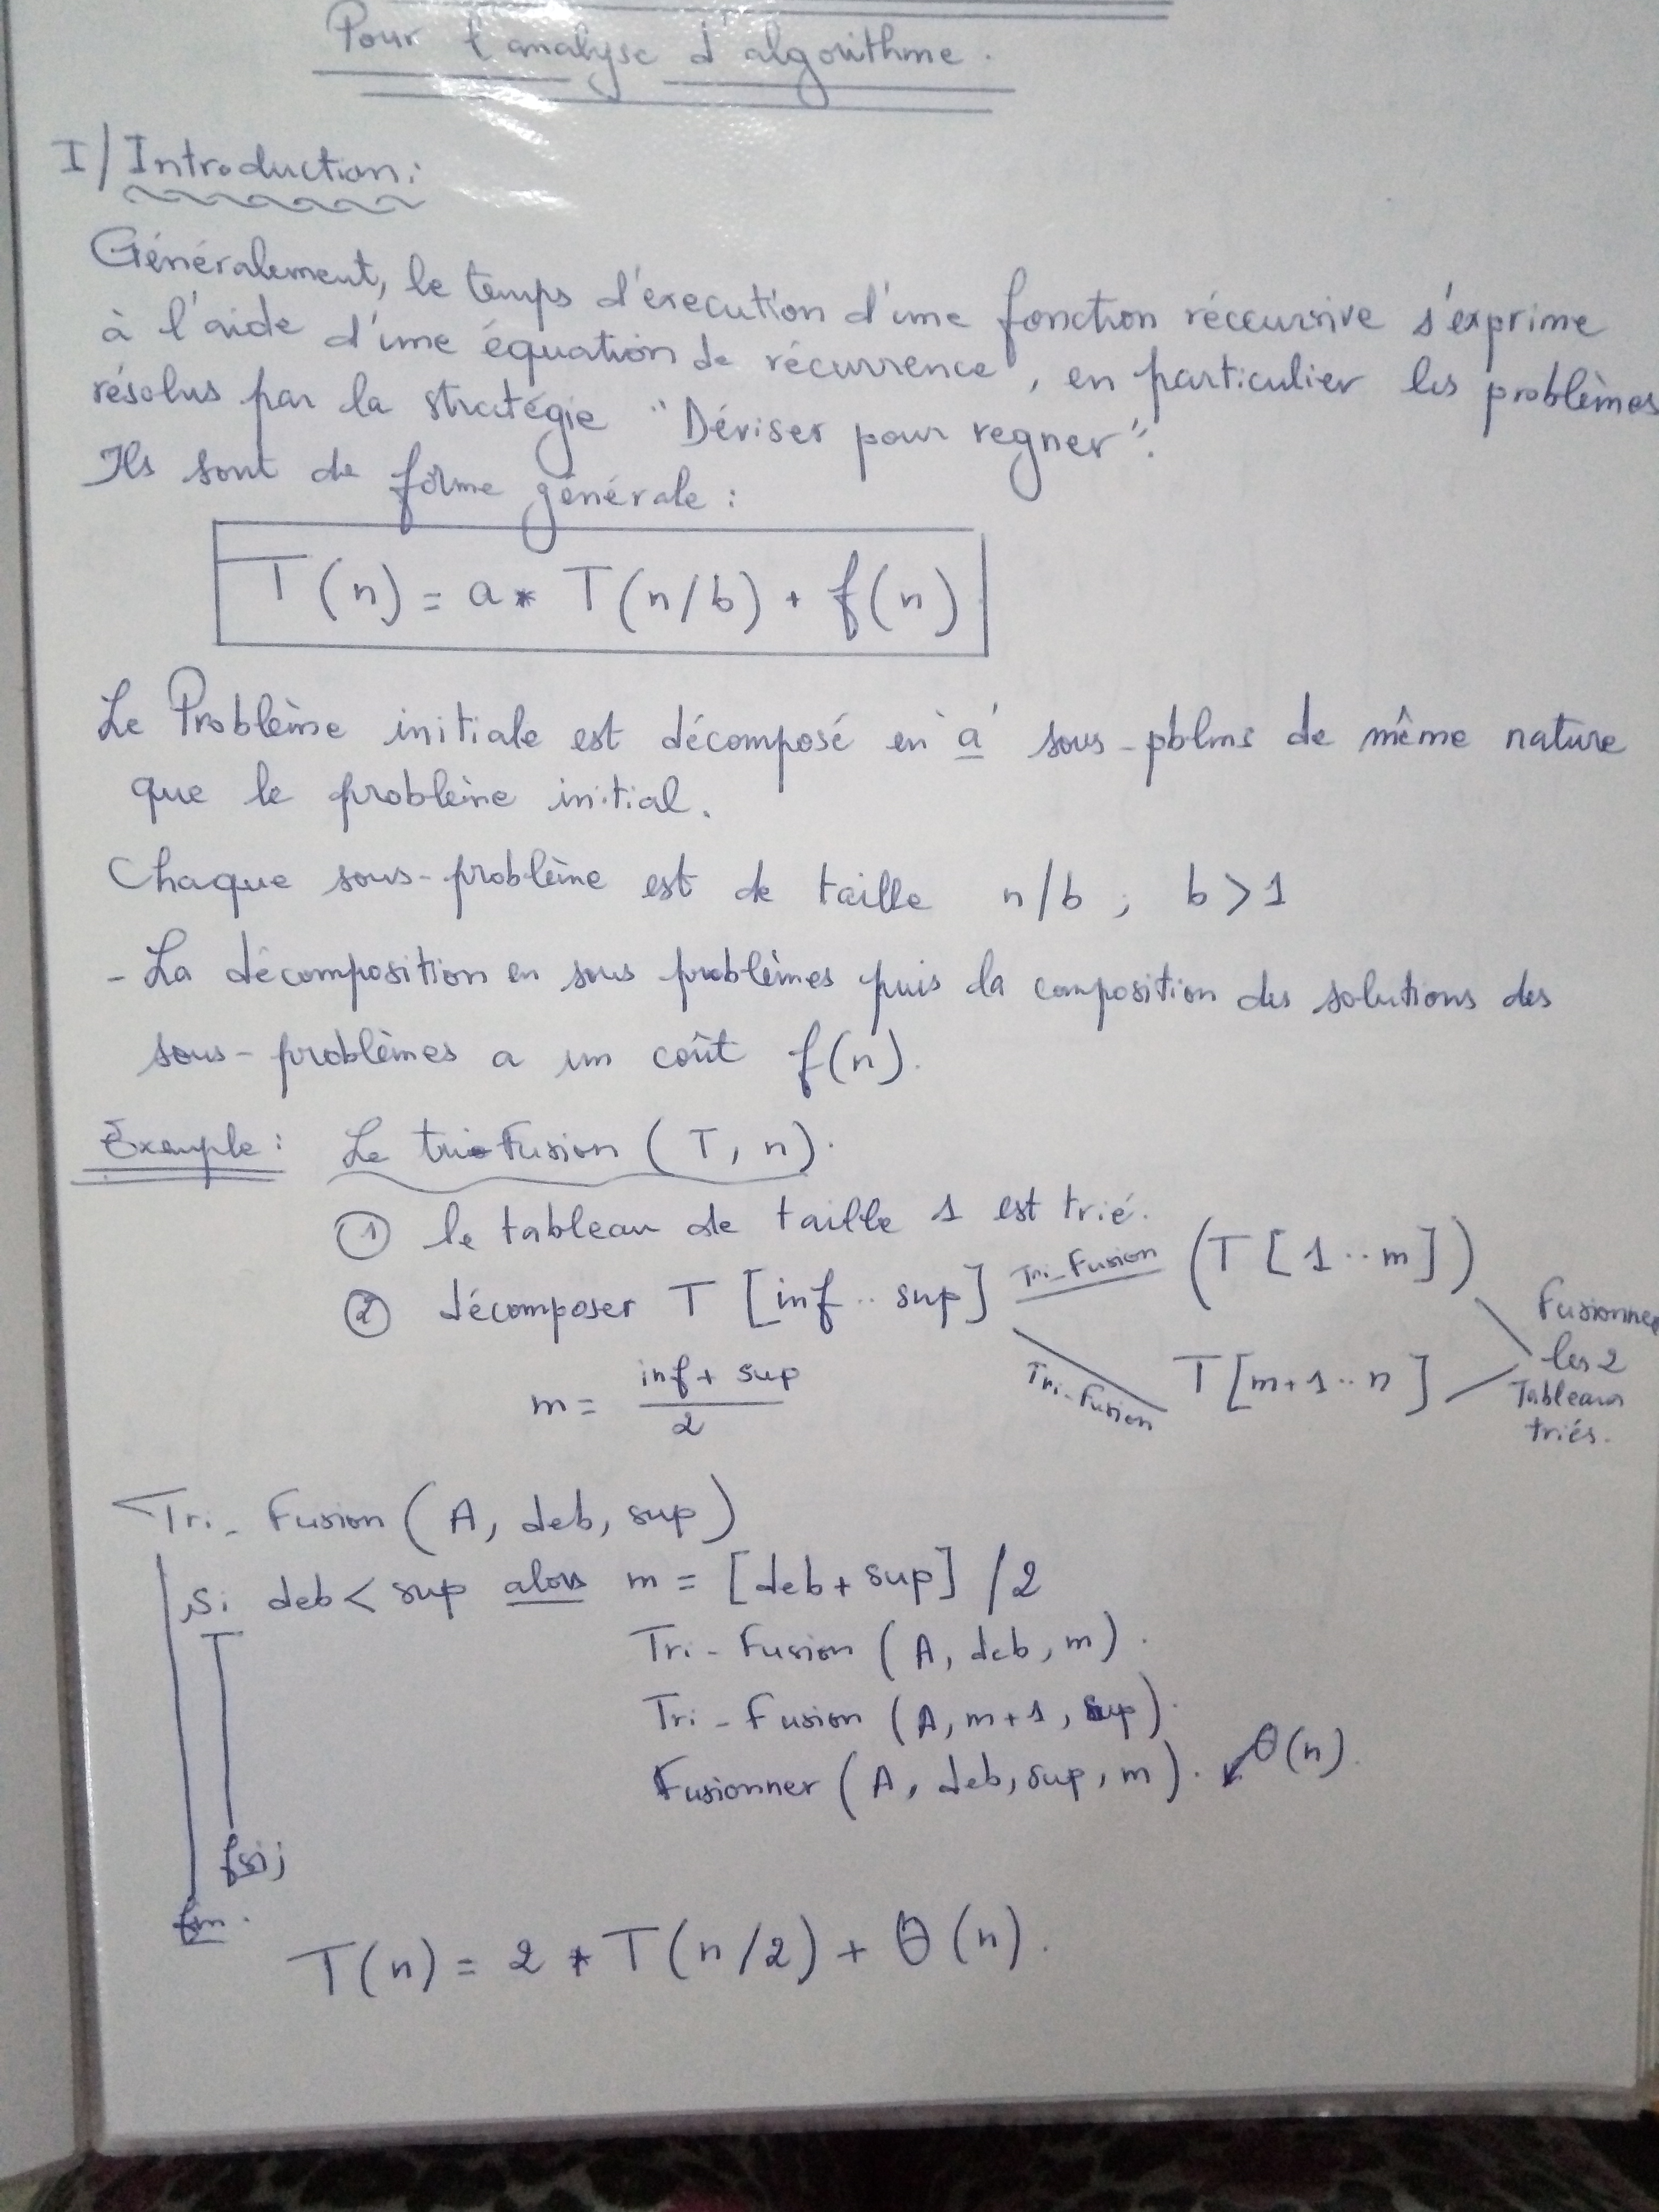 Pour l'analyse d'algorithme.
I/ Introduction:
Généralement, le temps d'execution d'une fonction récursive s'exprime
à l'aide d'une équation de récurrence, en particulier les problèmes
résolus par la stratégie "Déviser pour regner".
Ils sont de forme générale :
T(n) = a * T(n/b) + f(n)
Le Problème initiale est décomposé en a sous-pblms de même nature
que le problème initial.
Chaque sous-problème est de taille n/b ; b > 1
- La décomposition en sous problèmes puis la composition des solutions des
sous-problèmes a un coût f(n).
Exemple : Le tri Fusion (T, n).
① le tableau de taille 1 est trié.
② décomposer T [inf .. sup] Tri_Fusion (T [1 .. m])
m = inf + sup / 2
Tri_Fusion T [m+1 .. n]
Fusionner
les 2
Tableaux
triés.
Tri_Fusion (A, deb, sup)
Si deb < sup alors m = [deb + sup] /2
Tri_Fusion (A, deb, m).
Tri_Fusion (A, m+1, sup).
Fusionner (A, deb, sup, m). θ(n).
fsi;
fin.
T(n) = 2 * T(n/2) + θ(n).